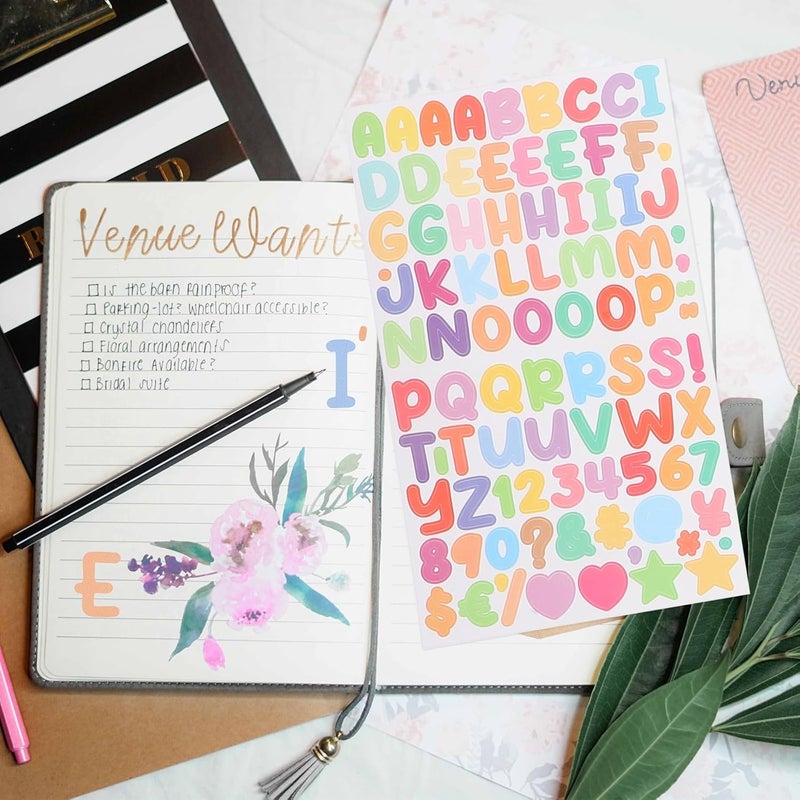 Venue Wants
Is the barn rainproof?
Parking-lot? Wheelchair accessible?
Crystal chandeliers
Floral arrangements
Bonfire Available?
Bridal suite
I'
E
AAAABBCCI
DDEEEEFF,
GGHHHIIIJ
JKKLLMM;
NNNOOOOP"
PQQRRSS!
TTUUVWX
YZ1234567
890?&
$€'/